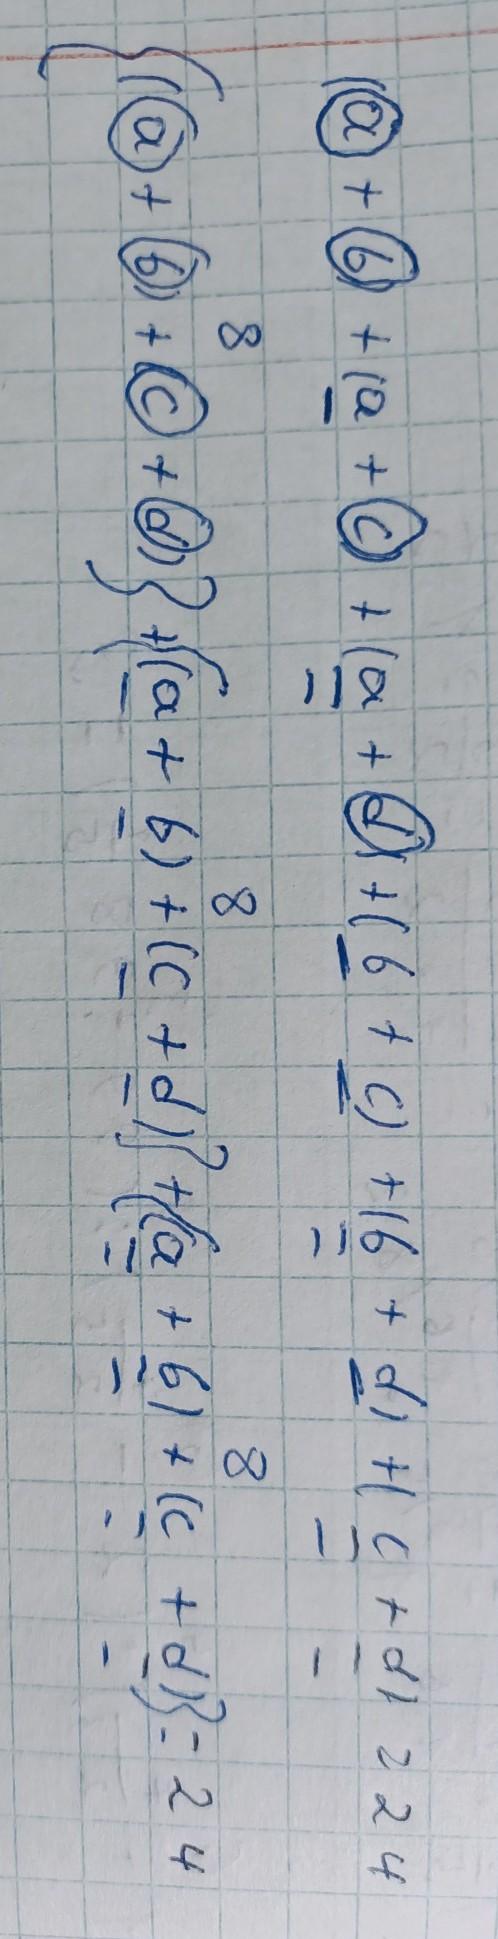 (a + b) + (a + c) + (a + d) + (b + c) + (b + d) + (c + d) = 24
8 8 8
{(a + b) + (c + d)} + {(a + b) + (c + d)} + {(a + b) + (c + d)} = 24